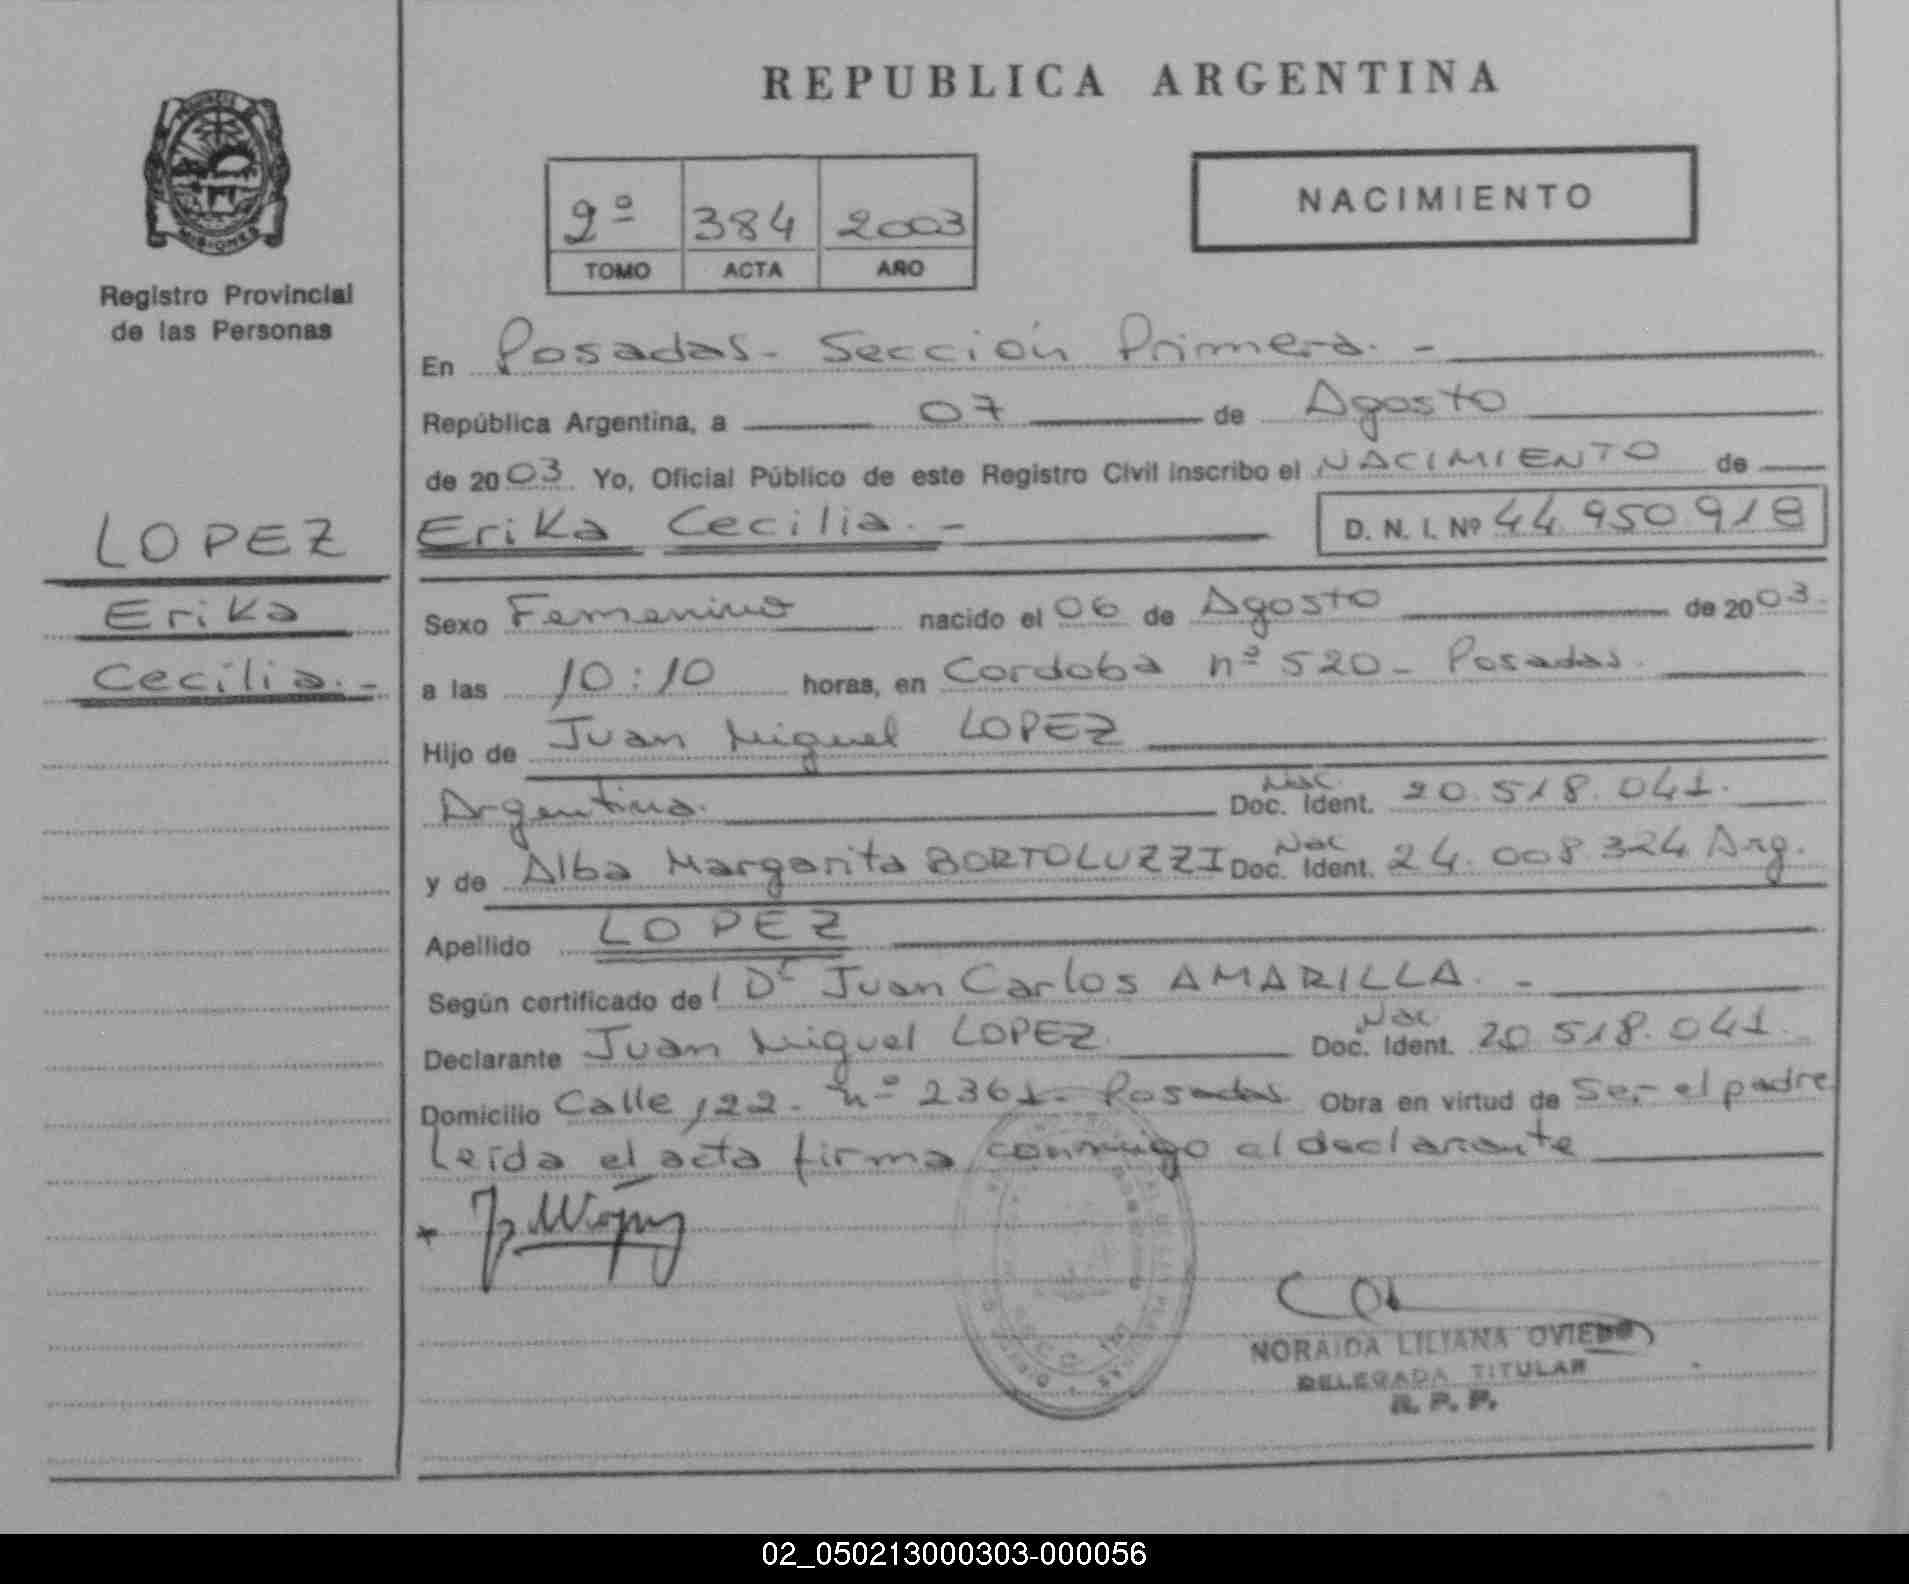 REPUBLICA ARGENTINA
MISIONES
Registro Provincial
de las Personas
2º 384 2003
TOMO ACTA AÑO
NACIMIENTO
LOPEZ
Erika
Cecilia.-
En Posadas - Sección Primera. -
República Argentina, a 07 de Agosto
de 2003. Yo, Oficial Público de este Registro Civil inscribo el NACIMIENTO de
Erika Cecilia. - D. N. I. Nº 44.950.918
Sexo Femenino nacido el 06 de Agosto de 2003.
a las 10:10 horas, en Cordoba nº 520 - Posadas.
Hijo de Juan Miguel LOPEZ
Argentina. Nac. Doc. Ident. 20.518.041.
y de Alba Margarita BORTOLUZZI Nac Doc. Ident. 24.008.324 Arg.
Apellido LOPEZ
Según certificado del Dr Juan Carlos AMARILLA. -
Declarante Juan Miguel LOPEZ. Nac Doc. Ident. 20.518.041.
Domicilio Calle 122 - nº 2361 - Posadas Obra en virtud de Ser el padre
Leída el acta firma conmigo el declarante
NORAIDA LILIANA OVIEDO
DELEGADA TITULAR
R. P. P.
02_050213000303-000056